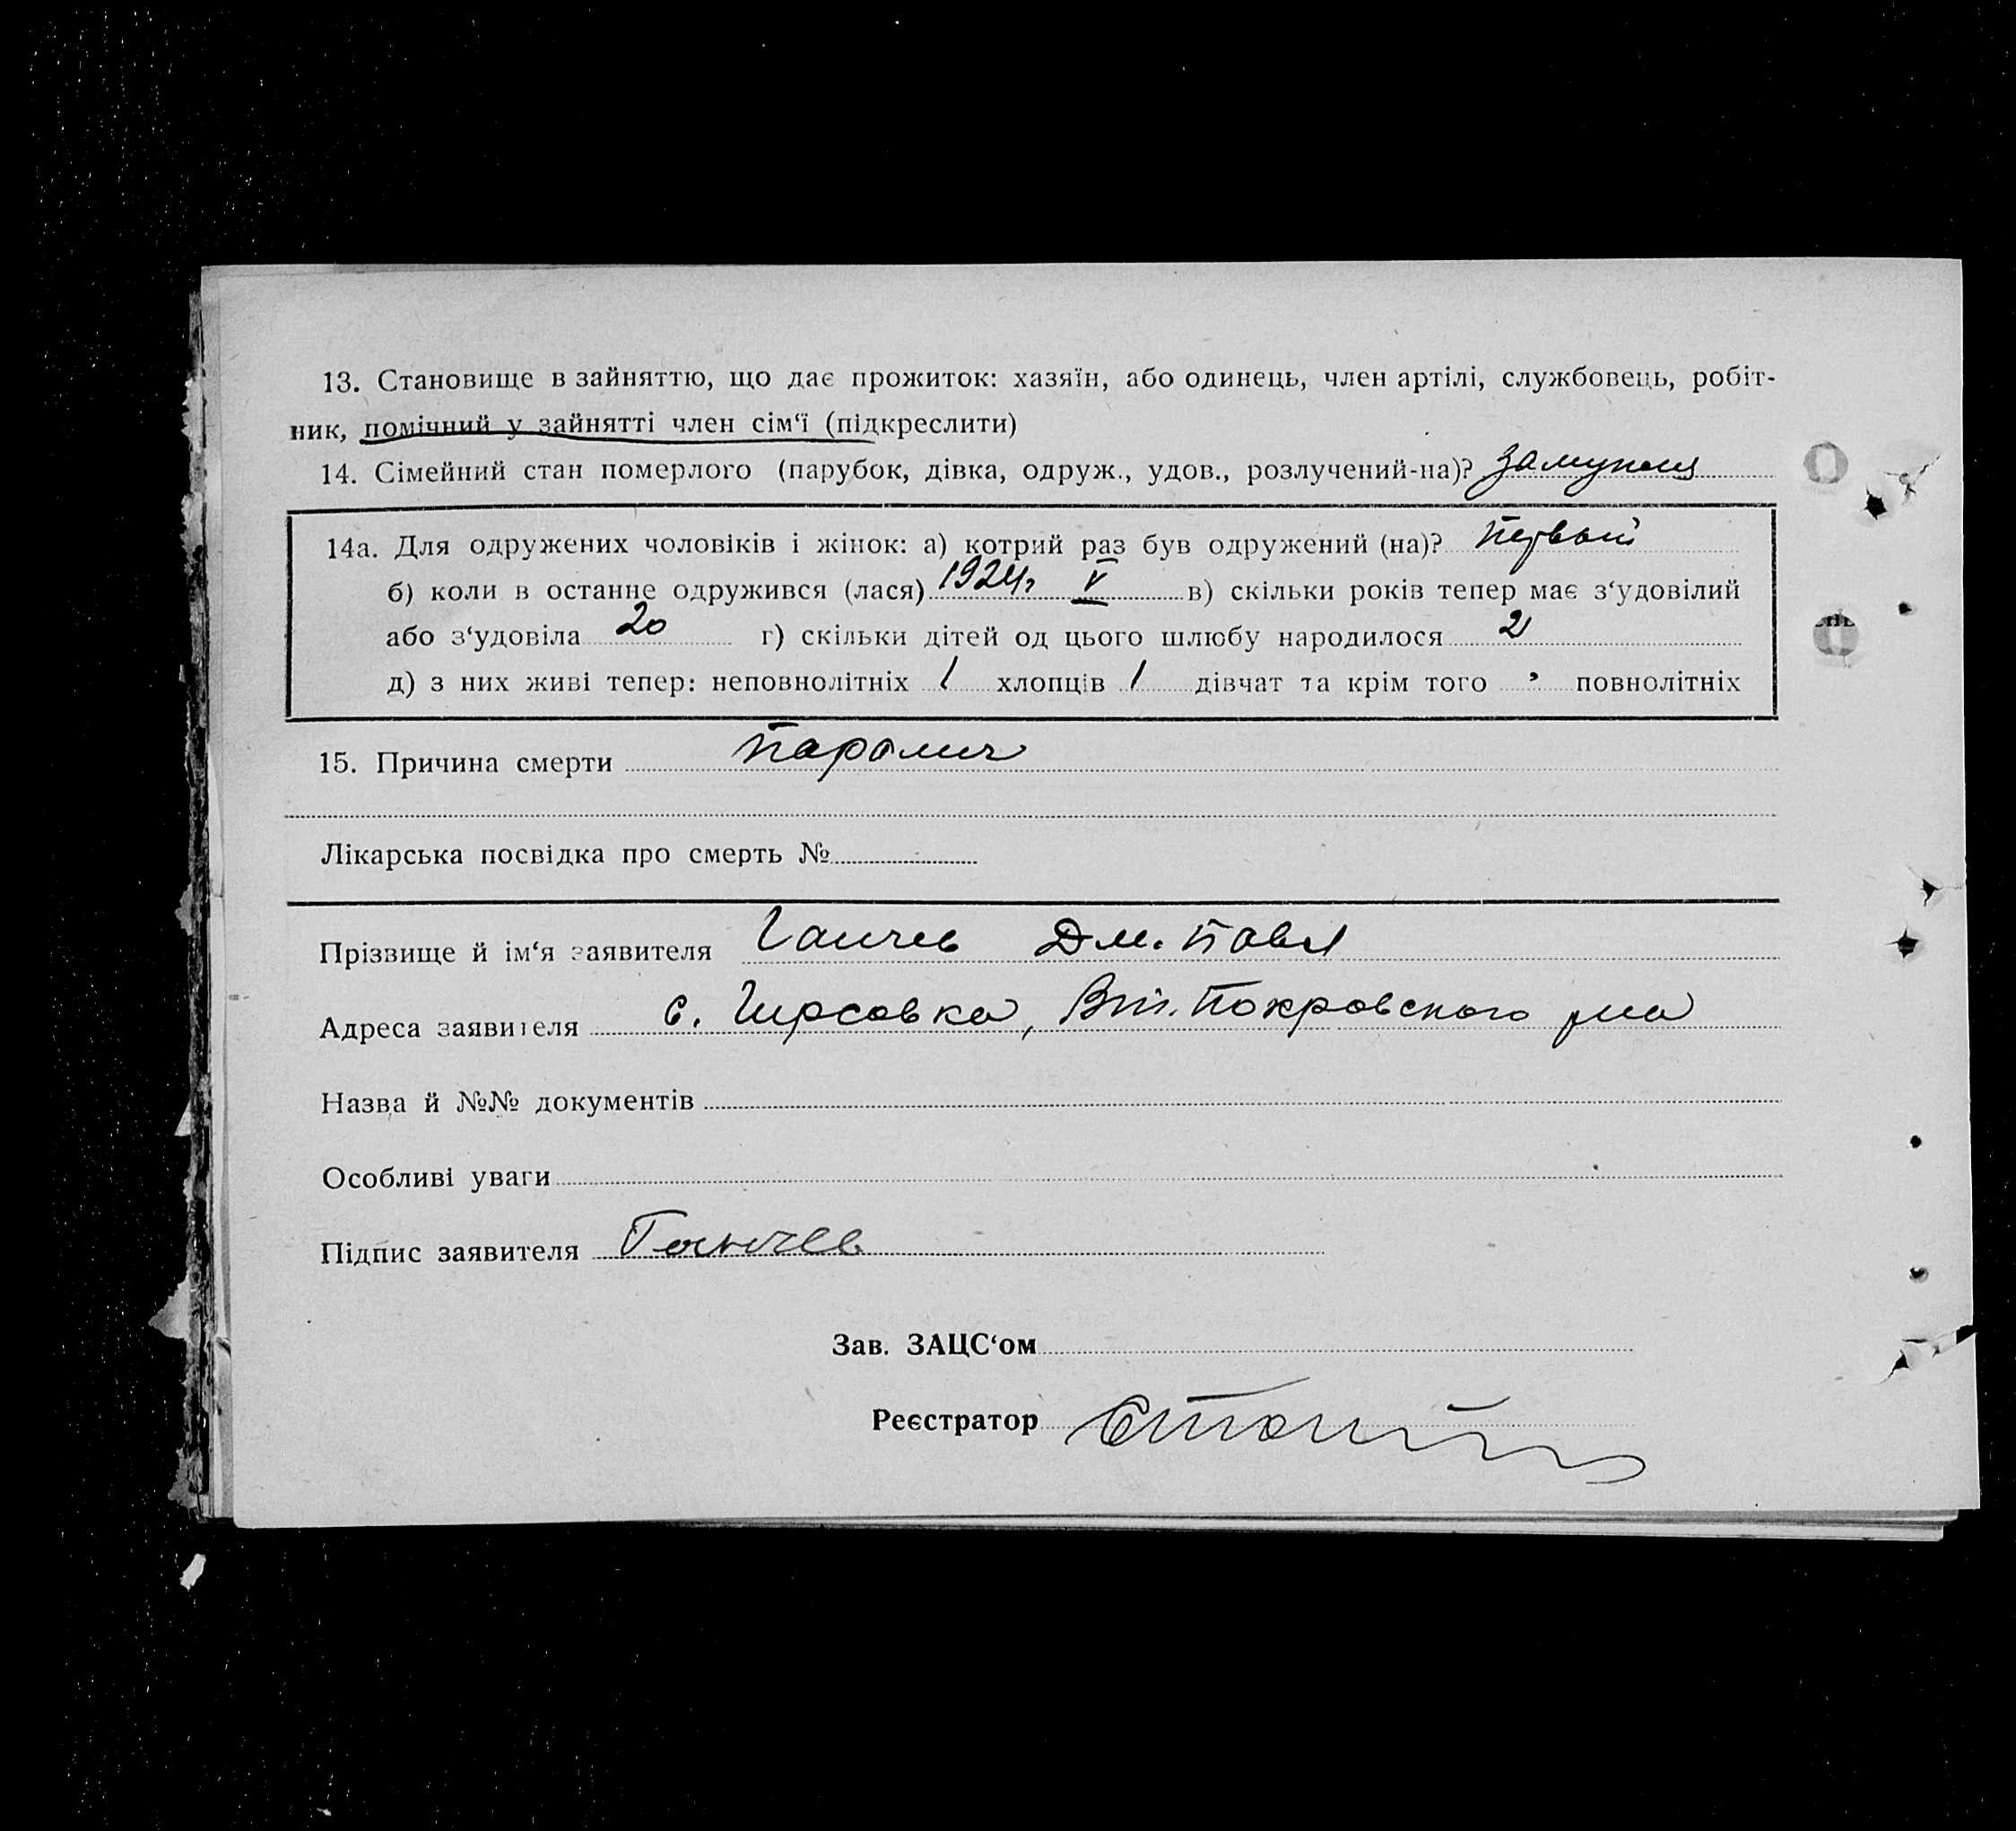 13. Становище в зайняттю, що дає прожиток: хазяїн, або одинець, член артілі, службовець, робіт-
ник, помічний у зайнятті член сім‘ї (підкреслити)
14. Сімейний стан померлого (парубок, дівка, одруж., удов., розлучений-на)? замужня
14а. Для одружених чоловіків і жінок: а) котрий раз був одружений (на)? первый
б) коли в останне одружився (лася) 1924г V в) скільки років тепер має з‘удовілий
або з‘удовіла 20 г) скільки дітей од цього шлюбу народилося 2
д) з них живі тепер: неповнолітніх 1 хлопців 1 дівчат та крім того повнолітніх
15. Причина смерти Паралич
Лікарська посвідка про смерть №
Прізвище й ім‘я заявителя Ганчев Дм. Павл
Адреса заявителя с. Гирсовка, Вт. Покровского р-на
Назва й №№ документів
Особливі уваги
Підпис заявителя Ганчев
Зав. ЗАЦС‘ом
Реєстратор